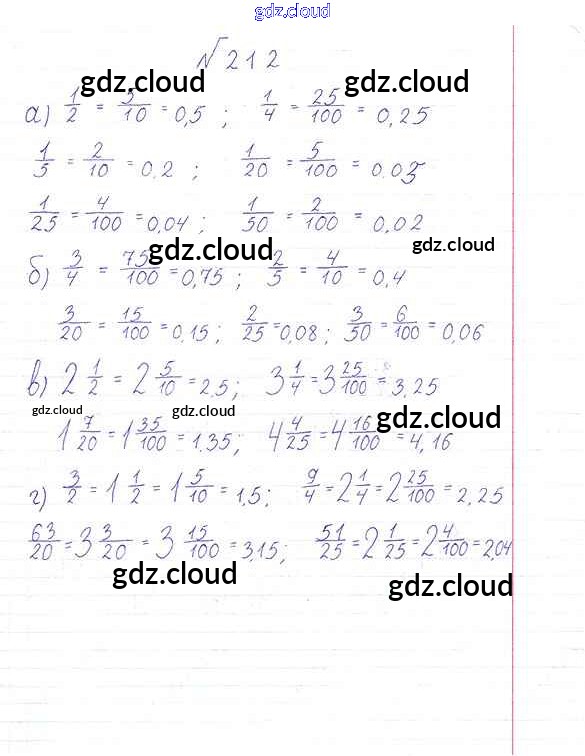 gdz.cloud
№ 212
gdz.cloud gdz.cloud
а) 1/2 = 5/10 = 0,5 ; 1/4 = 25/100 = 0,25
1/5 = 2/10 = 0,2 ; 1/20 = 5/100 = 0,05
1/25 = 4/100 = 0,04 ; 1/50 = 2/100 = 0,02
gdz.cloud gdz.cloud
б) 3/4 = 75/100 = 0,75 ; 2/5 = 4/10 = 0,4
3/20 = 15/100 = 0,15 ; 2/25 = 0,08 ; 3/50 = 6/100 = 0,06
в) 2 1/2 = 2 5/10 = 2,5 ; 3 1/4 = 3 25/100 = 3,25
gdz.cloud gdz.cloud gdz.cloud
1 7/20 = 1 35/100 = 1,35 ; 4 4/25 = 4 16/100 = 4,16
г) 3/2 = 1 1/2 = 1 5/10 = 1,5 ; 9/4 = 2 1/4 = 2 25/100 = 2,25
63/20 = 3 3/20 = 3 15/100 = 3,15 ; 51/25 = 2 1/25 = 2 4/100 = 2,04
gdz.cloud gdz.cloud